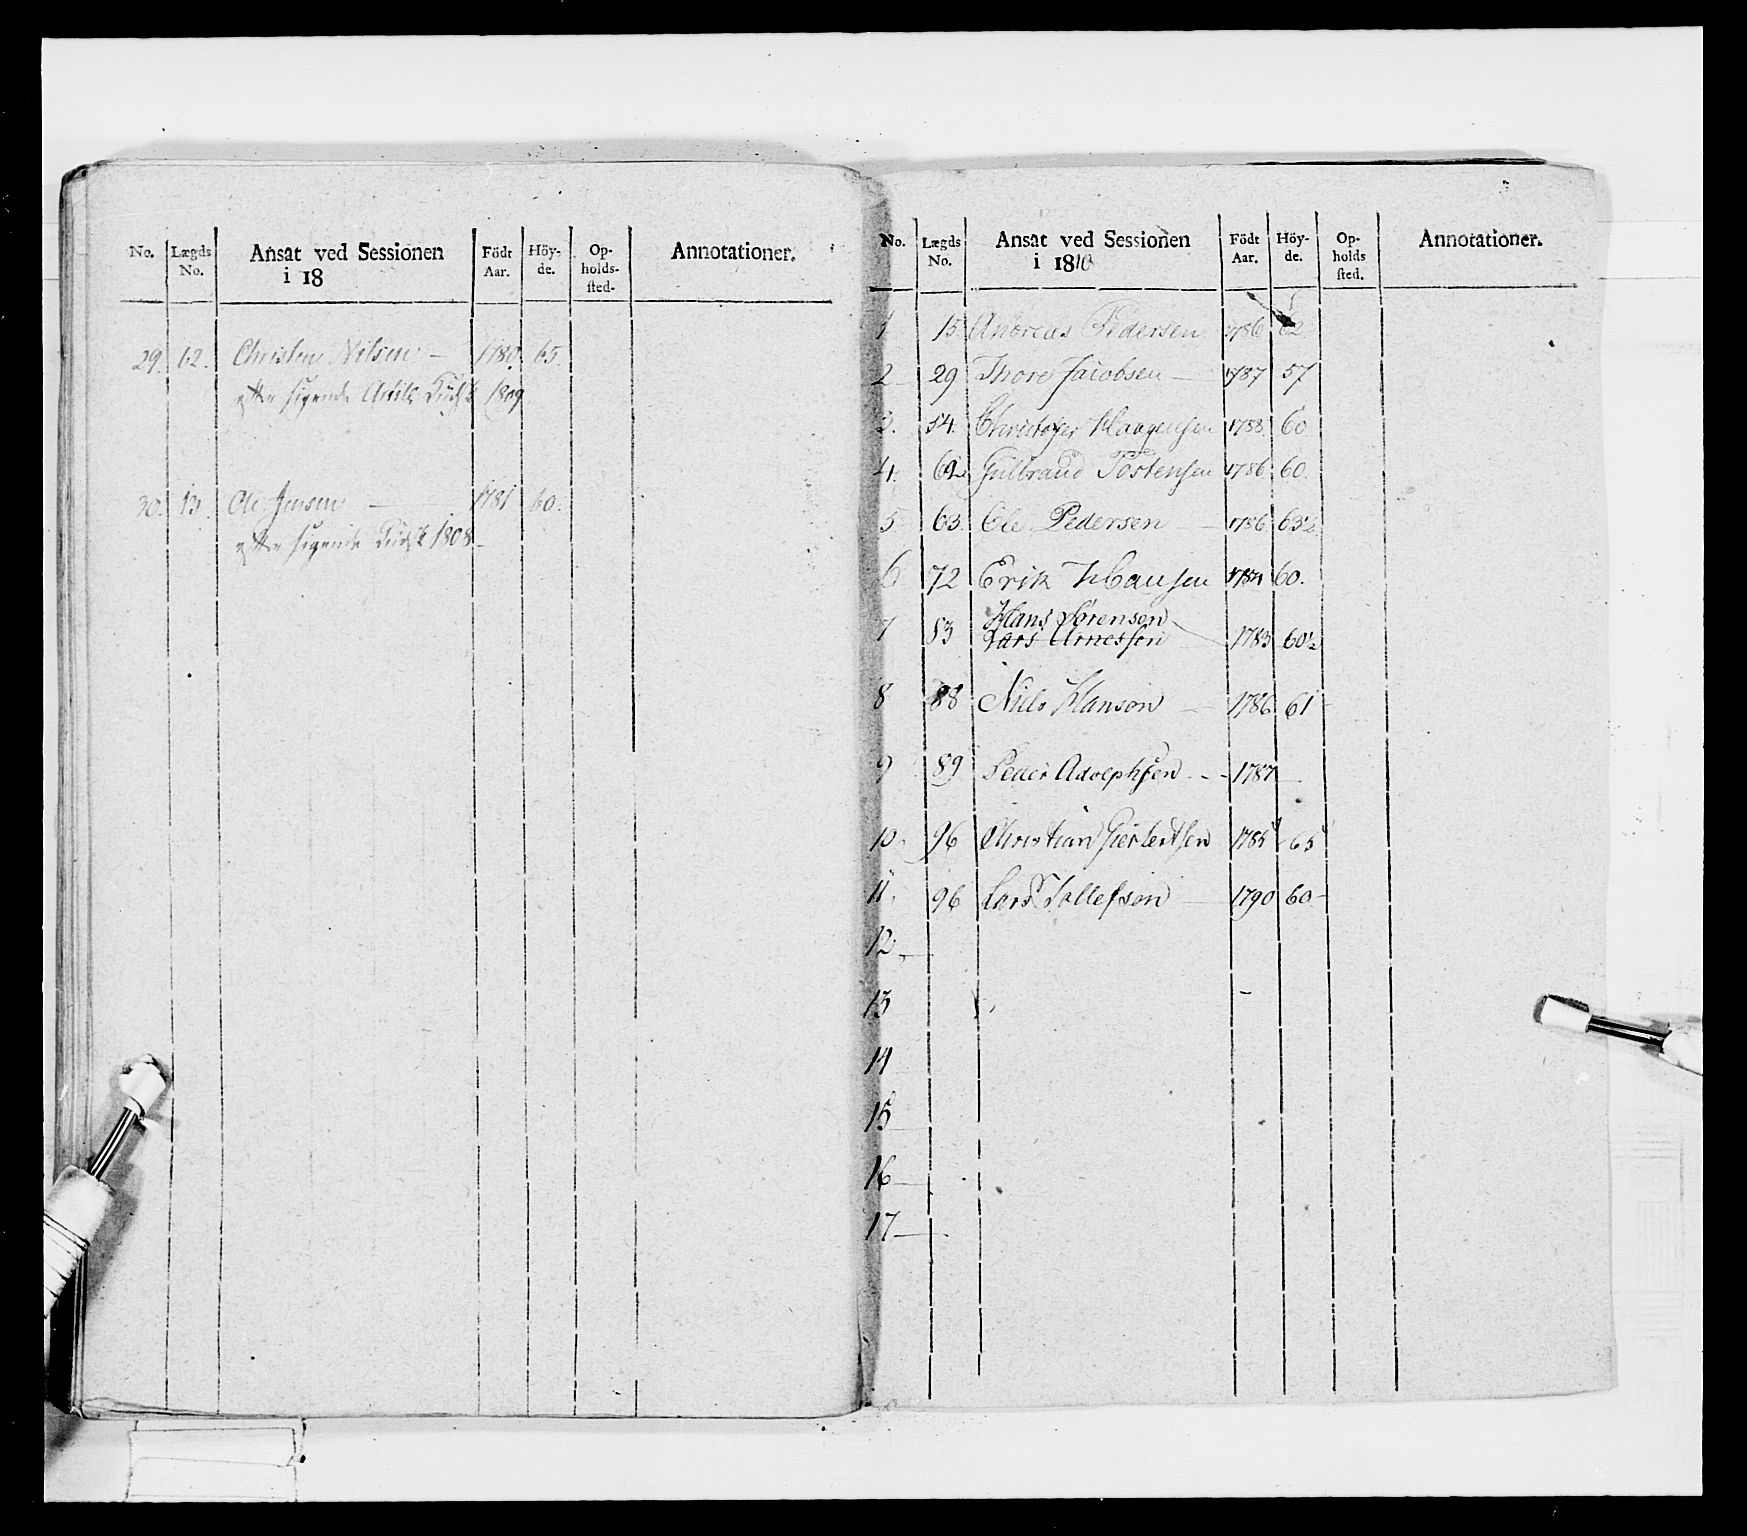 No. Lægds No. Ansat ved Sessionen i 18 Födt Aar. Höy-de. Op-holds-sted. Annotationer.
29. 62. Christen Nilsen - 1780. 65.
1809
30. 13. Ole Jensen - 1781 60.
1808
No. Lægds No. Ansat ved Sessionen i 1810 Födt Aar. Höy-de. Op-holds sted. Annotationer.
1 15 Andreas Pedersen 1786 62
2 29 Thore Jacobsen - 1787 57
3. 54. Christofer Haagensen 1788. 60
4. 62 Gulbrand Tostensen 1786 60.
5 63. Ole Pedersen - 1786 63½
6 72 Erik Hansen 1784 60.
7 83 Hans Sörensen
Lars Arnessen 1783 60½
8 88 Niels Hanson - 1786 61
9 89 Peder Adolphsen - - 1787
10. 96 Christian 1785 65
11. 96 Lars Tollefson - 1790 60-
12
13
14
15
16
17